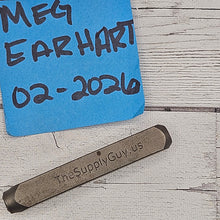 MEG
EARHART
02-2026
TheSupplyGuy.us